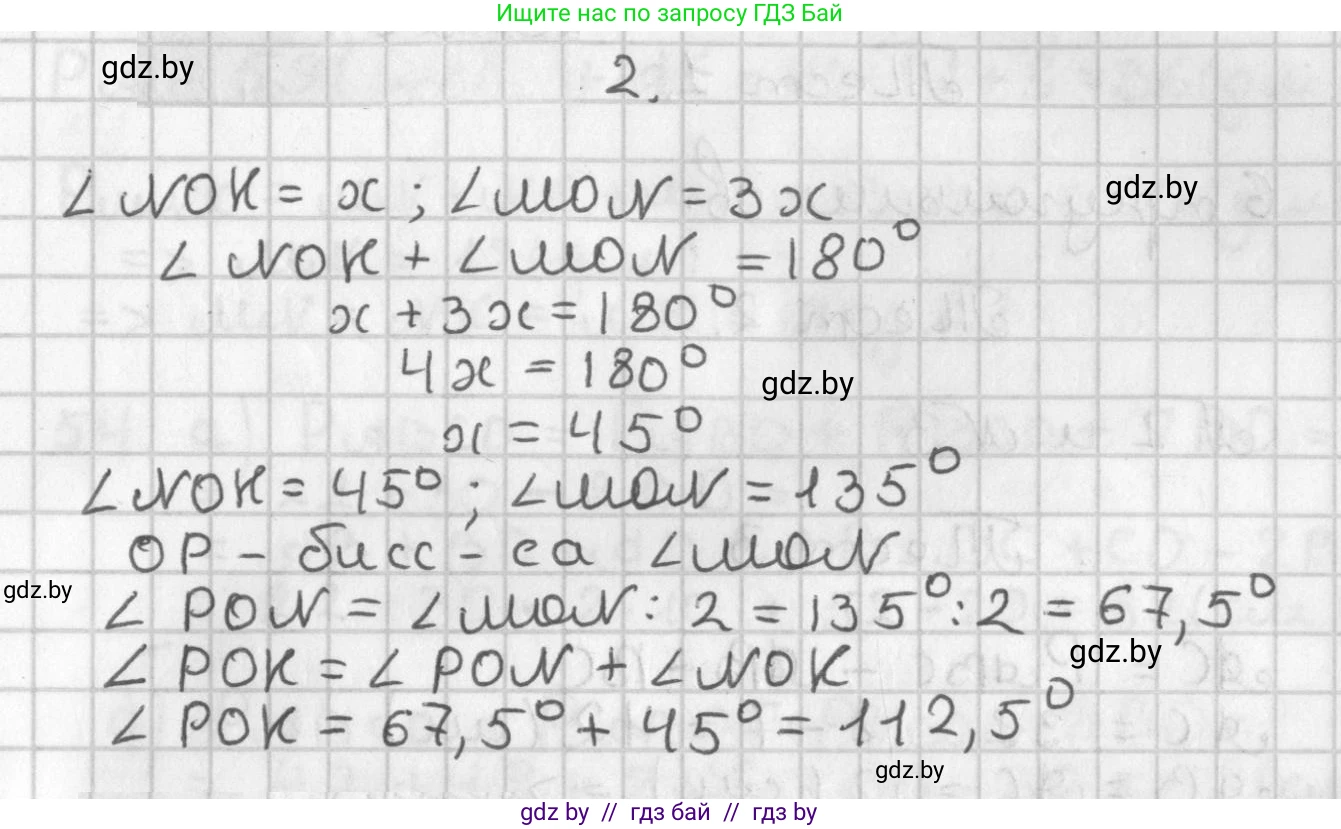 Ищите нас по запросу ГДЗ Бай
gdz.by
2.
∠NOK = x ; ∠MON = 3x
gdz.by
∠NOK + ∠MON = 180°
x + 3x = 180°
4x = 180°
gdz.by
x = 45°
∠NOK = 45° ; ∠MON = 135°
OP - бисс - са ∠MON
gdz.by
∠PON = ∠MON : 2 = 135° : 2 = 67,5°
∠POK = ∠PON + ∠NOK
gdz.by
∠POK = 67,5° + 45° = 112,5°
gdz.by
gdz by // гдз бай // гдз by